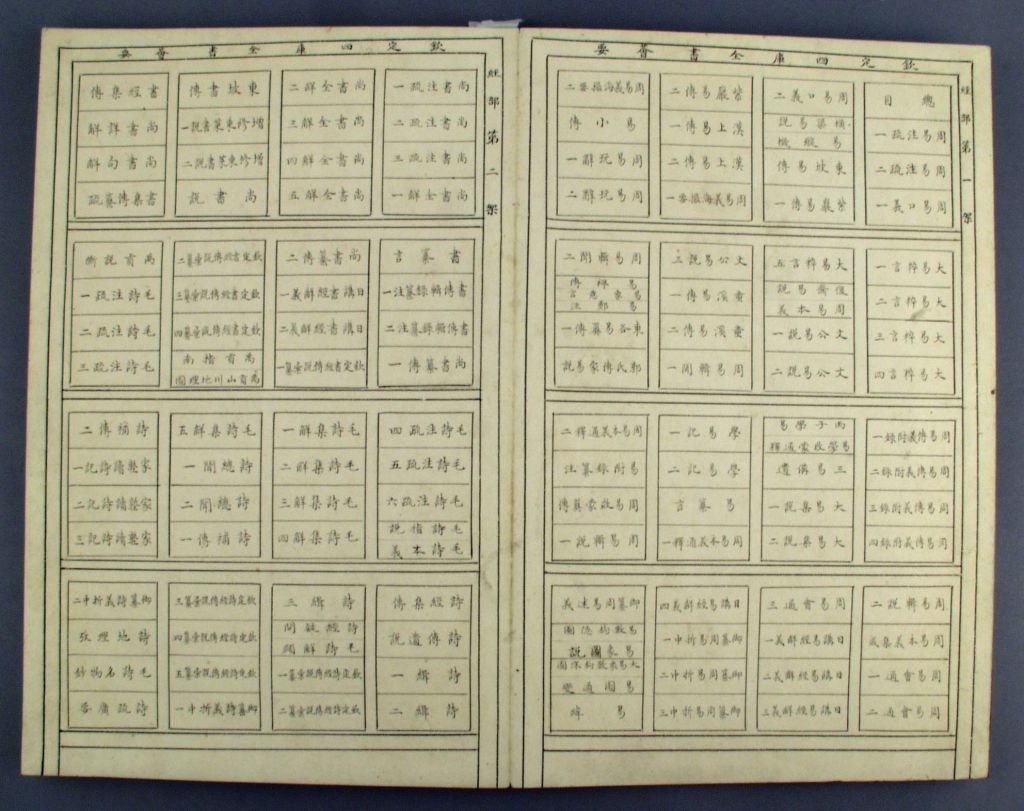 欽定四庫全書薈要
經部第一架
總目
周易注疏一
周易注疏二
周易口義一
周易口義二
橫渠易說
易璇璣
東坡易傳
紫巖易傳一
紫巖易傳二
漢上易傳一
漢上易傳二
周易義海撮要一
周易義海撮要二
易小傳
周易玩辭一
周易玩辭二
大易粹言一
大易粹言二
大易粹言三
大易粹言四
大易粹言五
復齋易說
周易本義
文公易說一
文公易說二
文公易說三
童溪易傳一
童溪易傳二
周易輯聞一
周易輯聞二
易裨傳
易象意言
東谷易翼傳一
郭氏傳家易說
周易傳義附錄一
周易傳義附錄二
周易傳義附錄三
周易傳義附錄四
丙子學易
易學啟蒙通釋
三易備遺
大易集說一
大易集說二
學易記一
學易記二
易纂言
周易本義通釋一
周易本義通釋二
易附錄纂注
周易啟蒙翼傳
周易輯說一
周易輯說二
周易本義集成
周易會通一
周易會通二
周易會通三
日講易經解義一
日講易經解義二
日講易經解義三
日講易經解義四
御纂周易折中一
御纂周易折中二
御纂周易折中三
御纂周易述義
易數鉤隱圖
易象圖說
大易象數鉤深圖
易圖通變
易緯
欽定四庫全書薈要
經部第二架
尚書注疏一
尚書注疏二
尚書注疏三
尚書全解一
尚書全解二
尚書全解三
尚書全解四
尚書全解五
東坡書傳
增修東萊書說一
增修東萊書說二
尚書說
書經集傳
尚書詳解
尚書句解
書集傳纂疏
書纂言
書傳輯錄纂注一
書傳輯錄纂注二
尚書纂傳一
尚書纂傳二
日講書經解義一
日講書經解義二
欽定書經傳說彙纂一
欽定書經傳說彙纂二
欽定書經傳說彙纂三
欽定書經傳說彙纂四
禹貢指南
禹貢山川地理圖
禹貢說斷
毛詩注疏一
毛詩注疏二
毛詩注疏三
毛詩注疏四
毛詩注疏五
毛詩注疏六
毛詩指說
毛詩本義
毛詩集解一
毛詩集解二
毛詩集解三
毛詩集解四
毛詩集解五
詩總聞一
詩總聞二
詩補傳一
詩補傳二
家塾讀詩記一
家塾讀詩記二
家塾讀詩記三
詩經集傳
詩傳遺說
詩緝一
詩緝二
詩緝三
詩經疑問
欽定詩經傳說彙纂一
欽定詩經傳說彙纂二
欽定詩經傳說彙纂三
欽定詩經傳說彙纂四
欽定詩經傳說彙纂五
御纂詩義折中一
御纂詩義折中二
詩地理攷
毛詩名物鈔
詩疏廣要